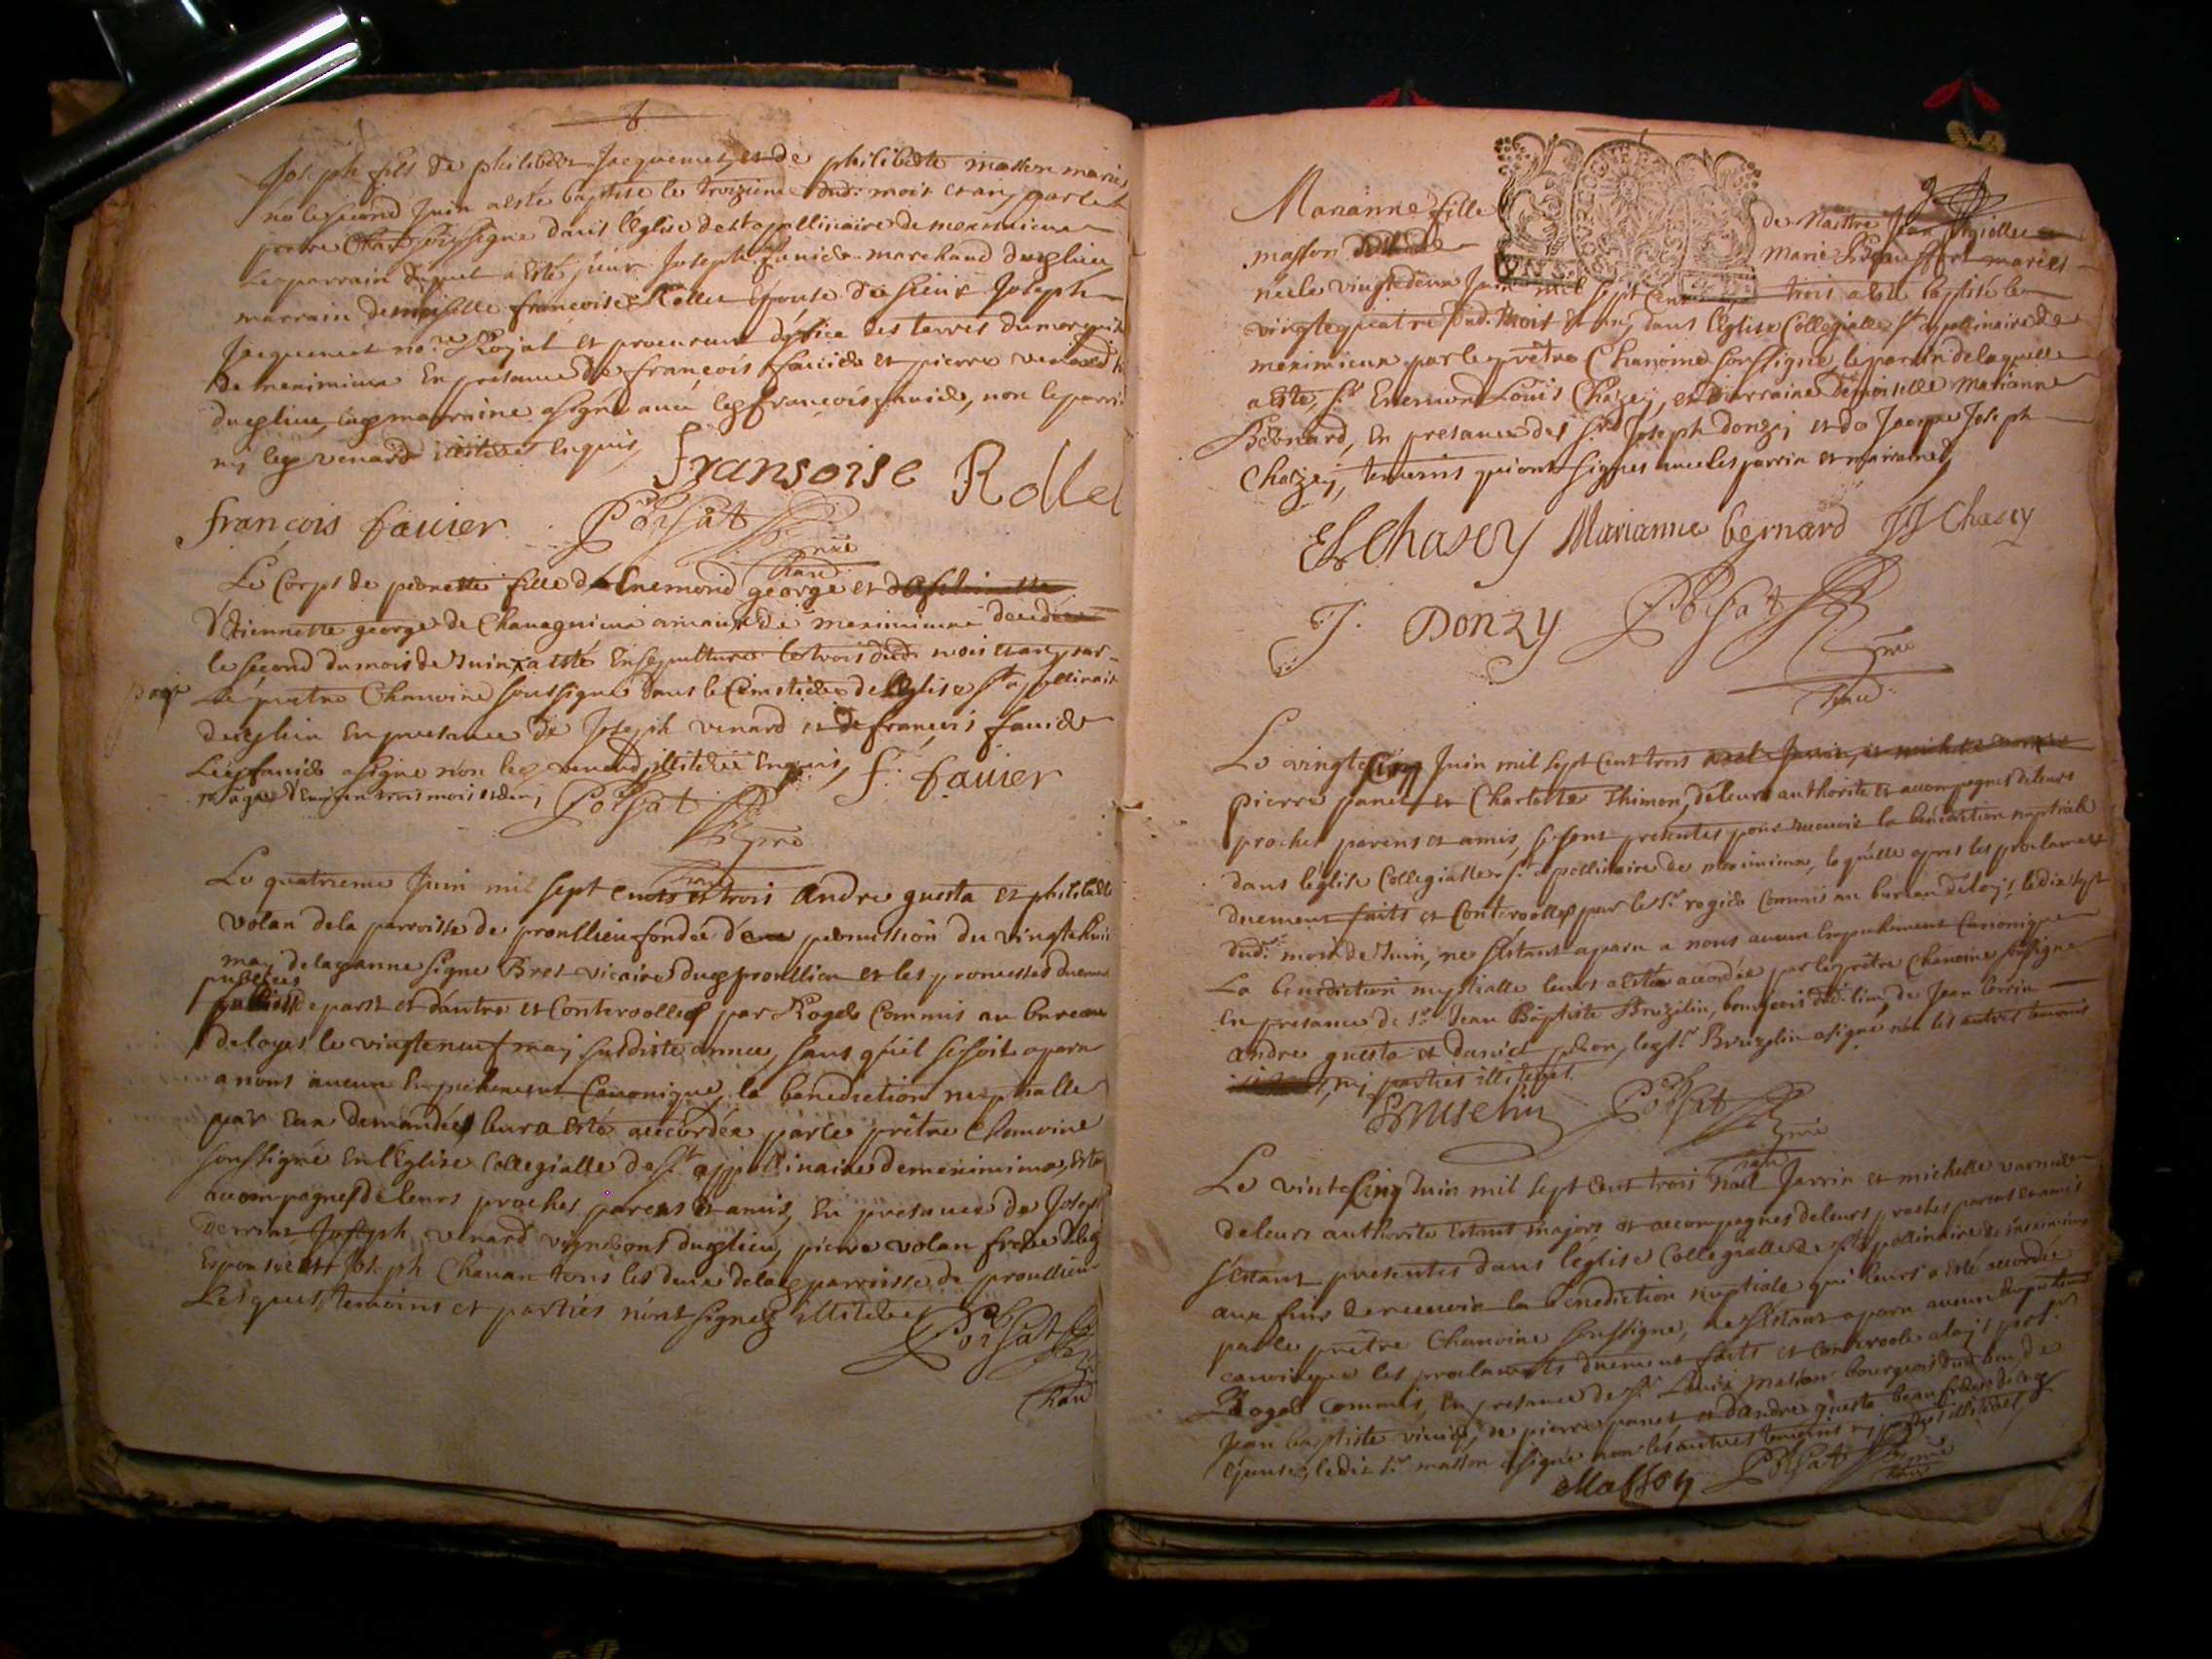 Joseph fils de philibert Jacquemet, et de philiberte masson mariés
né le second Juin a esté baptisé le troizieme dud. mois et an, par le
prêtre Chan. soussigné dans l'Eglise de st apollinaire de meximieux
Le parrain duquel a esté sieur Joseph favier marchand dud lieu
marrain demoiselle françoise Rollet Epouse du sieur Joseph
Jacquemet no.re Royal et procureur d'office des terres du marquisat
de meximieux En presance de françois favier et pierre venard
dud lieu, lad marraine a signé avec led françois favier, non le parrin
ny led venard illiteré Enquis,
fransoise Rollet
françois favier Porsat
p.re
Chan.
Le Corps de pernette fille d'Enemond george et
d'Etiennette george de Chavagnieux de meximieux decedée
le second du mois de Juin, a esté Ensepulturé le trois dud. mois et an, par
Le pretre Chanoine soussigné dans le Cimetiere de l'Eglise st apollinaire
dud lieu En presance de Joseph venard et de françois favier
Led favier a signé non led venard illiteré Enquis, f. favier
agée d'Environ trois mois et demy Porsat
p.re
Chan.
Le quatrieme Juin mil sept cents et trois André questa et philiberte
volan de la parroisse de proullieu fondée d'une permission du vingt huit
may de lad année signé Bret vicaire dud proullieu et les promesses duement
publiées
de part et d'autre et Contreroollés par Roger Commis au bureau
de loyes le vingt neuf may susdiste année, sans qu'il se soit aparu
a nous aucun Empechement Canonique, la benediction nuptialle
par Eux demandée leur a esté accordée par le prêtre Chanoine
soussigné En l'Eglise Collegialle de st appollinaire de meximieux, Estant
accompagnés de leurs proches parens et amis, En presance de Joseph
Joseph venard vignerons dud lieu, pierre volan frere de lad
Espouse et Joseph Chavan tous les deux de lad parroisse de proullieu
Lesquels temoins et parties n'ont signés illiterés Porsat
p.re
Chan
Marianne fille de Maître Jean
masson marié
née le vingt deux Juin mil sept cent trois a esté baptisé le
vingt quatre dud. mois et an, dans l'Eglise Collegialle st apollinaire de
meximieux par le prêtre Chanoine soussigné, le parrin de laquelle
a esté, sr Enemond Louis Chazey, et marraine Demoiselle Marianne
Bernard, En presance des srs Joseph donzy et de Jacque Joseph
Chazey, temoins qui ont signés avec les parrin et marraine,
EL Chasey Marianne bernard JJ Chasey
J. Donzy Porsat
p.re
Chan.
Le vingt Cinq Juin mil sept Cent trois
pierre panet et Charlotte Thimon, de leur authorité et accompagnés de leurs
proches parens et amis, se sont presentés pour recevoir la benediction nuptiale
dans l'église Collegialle st apollinaire de meximieux, laquelle apres les proclamats
duement faits et Contreroollés par le sr rogier Commis au bureau de loys, le dix sept
dud. mois de Juin, ne s'estant aparu a nous aucun Empechement Canonique
La benediction nuptialle leurs a esté accordée par led prêtre Chanoine soussigné
En presance de sr Jean Baptiste Bruzelin, bourgeois dud. lieu, de Jean
andre questa et daniel, led sr Bruzelin a signé non les autres temoins
ny parties illiterés.
Bruselin Porsat
p.re
Chan.
Le vinte Cinq Juin mil sept Cent trois noel Jarrin et michelle varnier
de leurs authorité Estant majors et accompagnés de leurs proches parens et amis
s'Estant presentés dans l'eglise Collegialle de st apollinaire de meximieux
aux fins de recevoir la benediction nuptiale qui leurs a Esté accordée
par le prêtre Chanoine soussigné, ne s'Estant aparu aucun Empechement
canonique les proclamats duement faits et Contreroole a loys par sr
Roger Commis, En presance de sr Louis masson bourgeois dud lieu, de
Jean baptiste, de pierre panet, et d'andre questa beau frere de lad
Epouse, ledit sr masson a signé non les autres temoins ny parties illiterés
Masson Porsat p.re
Chan.